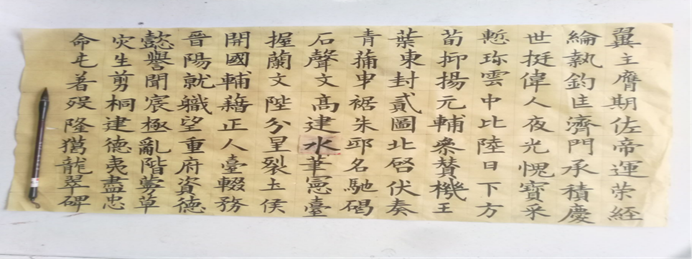 翼主膺期佐帝運荣経
綸執鈞匡濟門承積慶
世挺偉人夜光愧寶采
慙珎雲中比陸日下方
荀抑揚元輔叅賛機王
葉東封貳圖北啓伏奏
青蒲申裾朱邸名馳碣
石聲文髙建水筆憲臺
握蘭文陛分里裂圡侯
開國輔藉正人臺輟務
晉陽就職望重府資德
懿譽聞宸極亂階夢草
灾生剪桐建德夷盡忠
命屯着殁隆龍翠碑